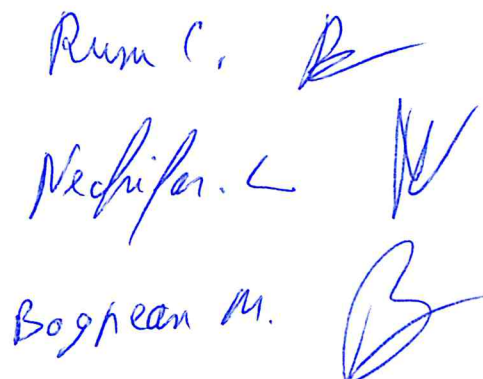 Rusu C.
Nechifor. L
Bogpean M.